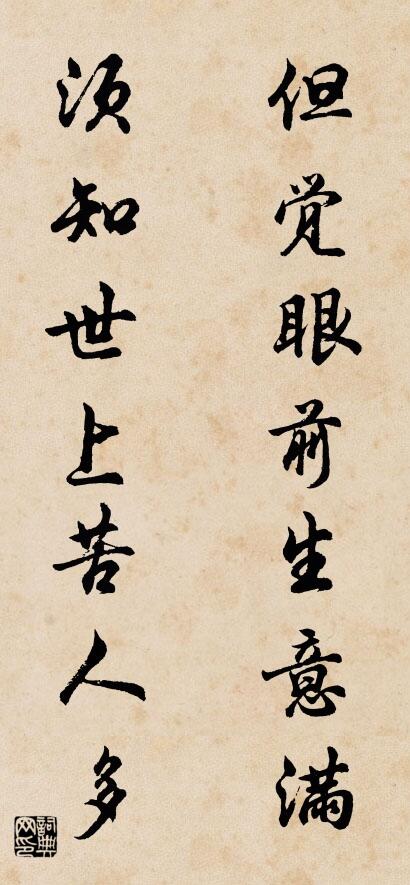 但觉眼前生意满
须知世上苦人多
词典网印